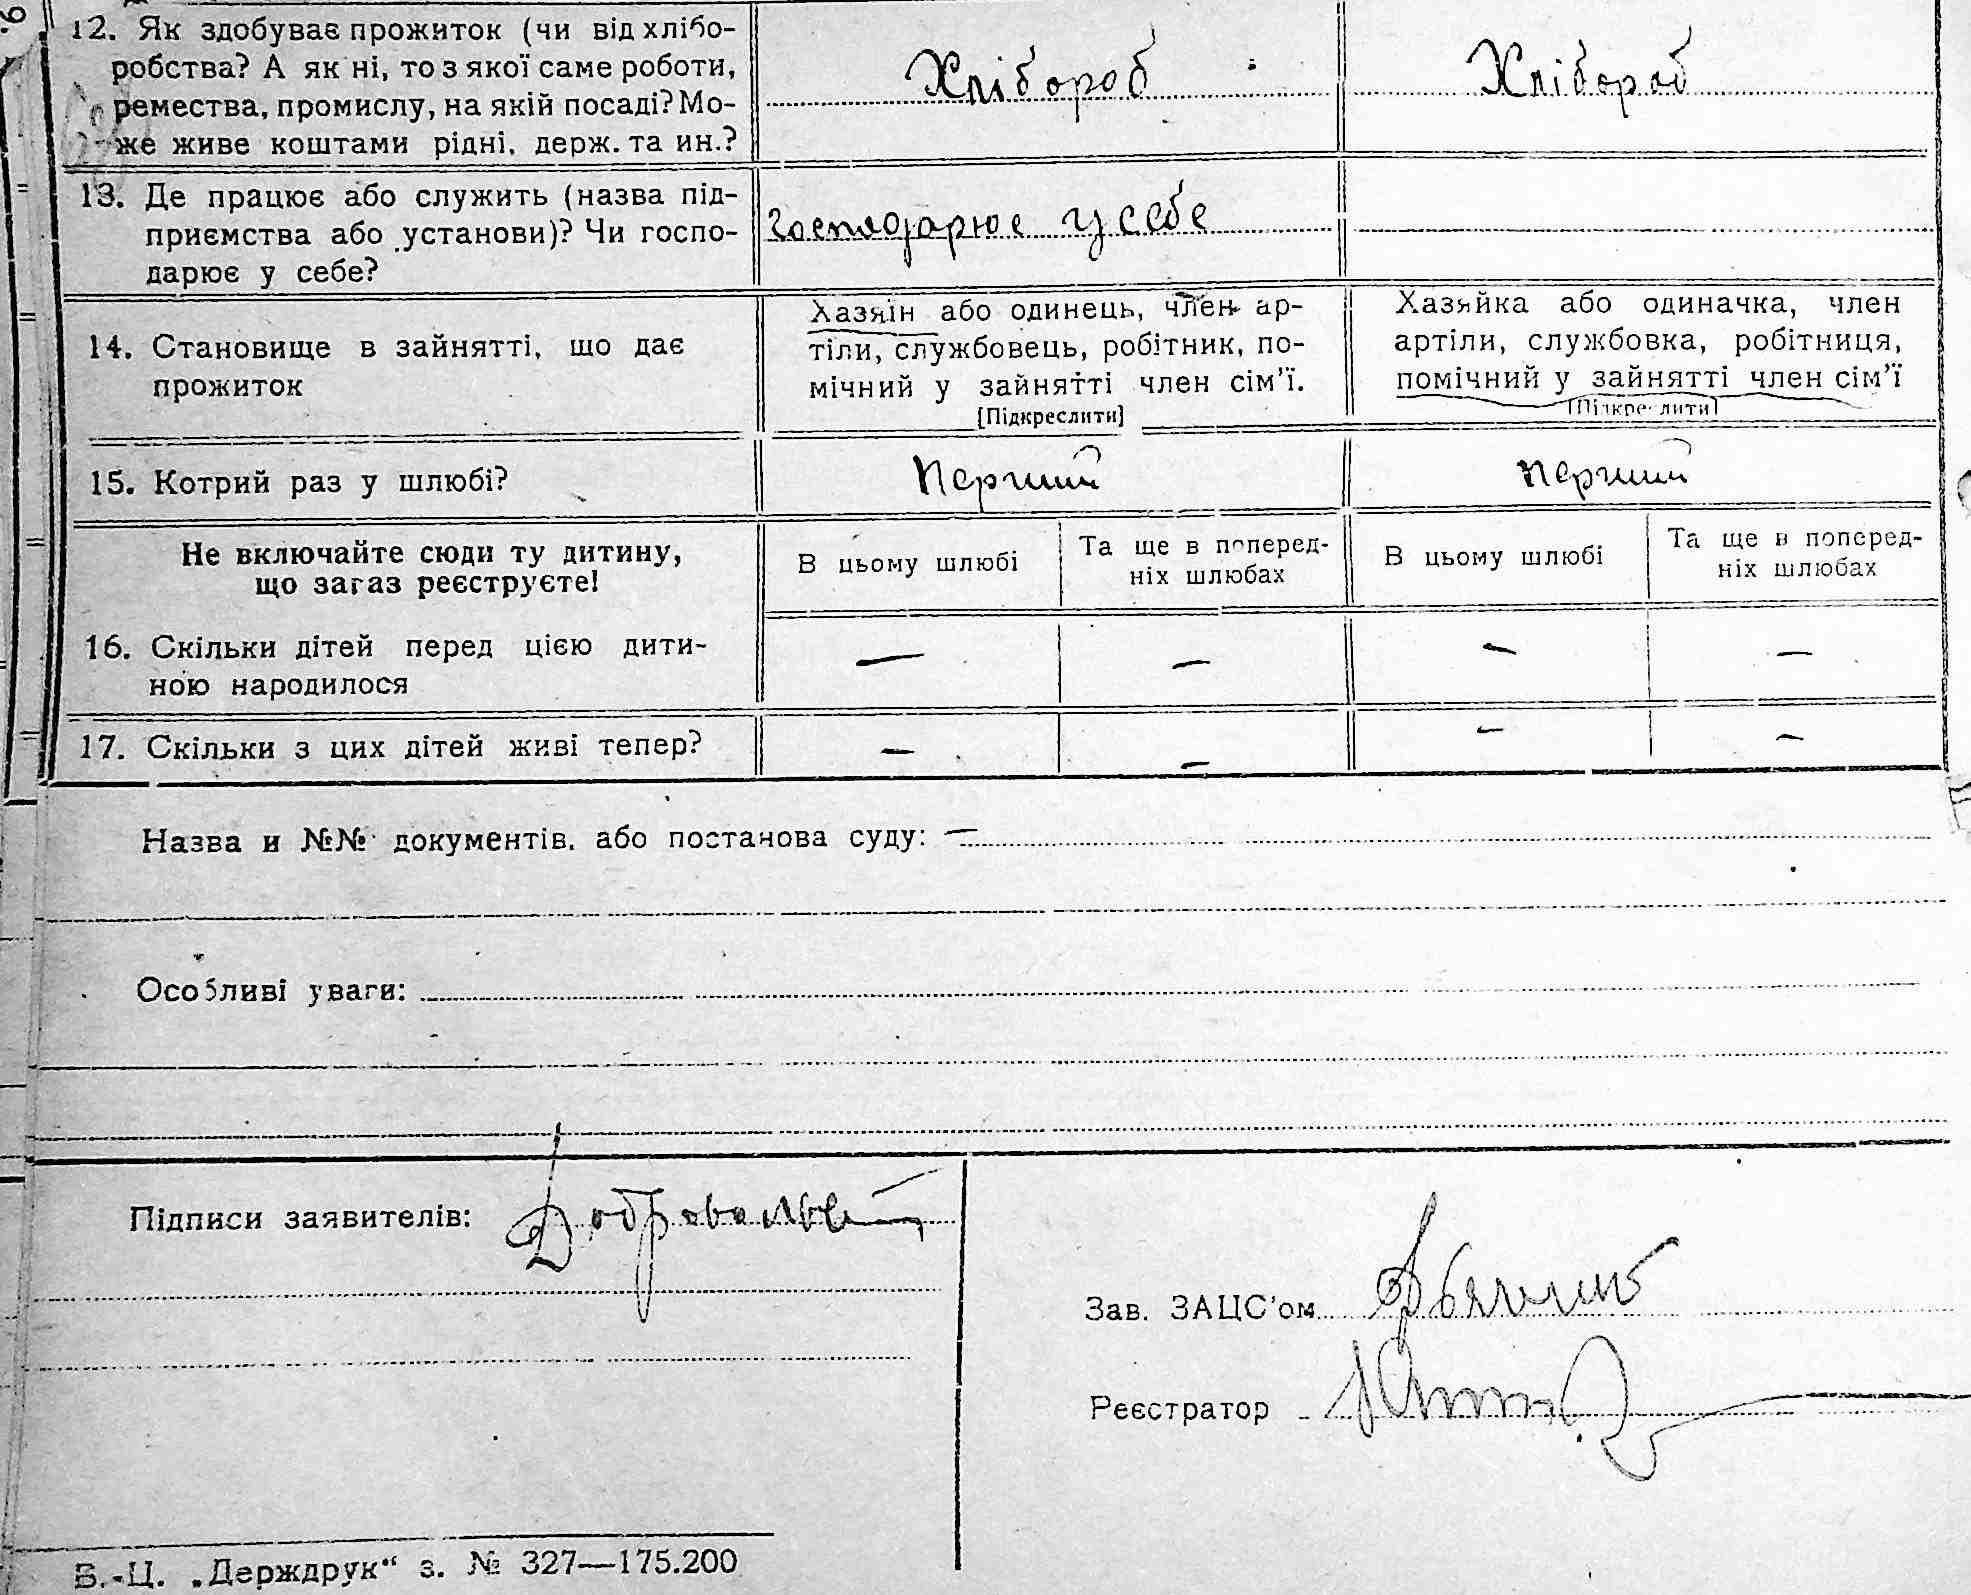 12. Як здобуває прожиток (чи від хлібо-
робства? А як ні, то з якої саме роботи,
ремества, промислу, на якій посаді? Мо-
же живе коштами рідні, держ. та ин.?
Хлібороб
Хлібороб
13. Де працює або служить (назва під-
приємства або установи)? Чи госпо-
дарює у себе?
Господарює у себе
14. Становище в зайнятті, що дає
прожиток
Хазяїн або одинець, член ар-
тіли, службовець, робітник, по-
мічний у зайнятті член сім'ї.
[Підкреслити]
Хазяйка або одиначка, член
артіли, службовка, робітниця,
помічний у зайнятті член сім'ї
[Підкреслити]
15. Котрий раз у шлюбі?
Перший
Перший
Не включайте сюди ту дитину,
що зараз реєструєте!
В цьому шлюбі
Та ще в поперед-
ніх шлюбах
В цьому шлюбі
Та ще в поперед-
ніх шлюбах
16. Скільки дітей перед цією дити-
ною народилося
— — — —
17. Скільки з цих дітей живі тепер?
— — — —
Назва и №№ документів, або постанова суду: —
Особливі уваги:
Підписи заявителів:
Зав. ЗАЦС'ом
Реєстратор
В.-Ц. „Держдрук“ з. № 327—175.200